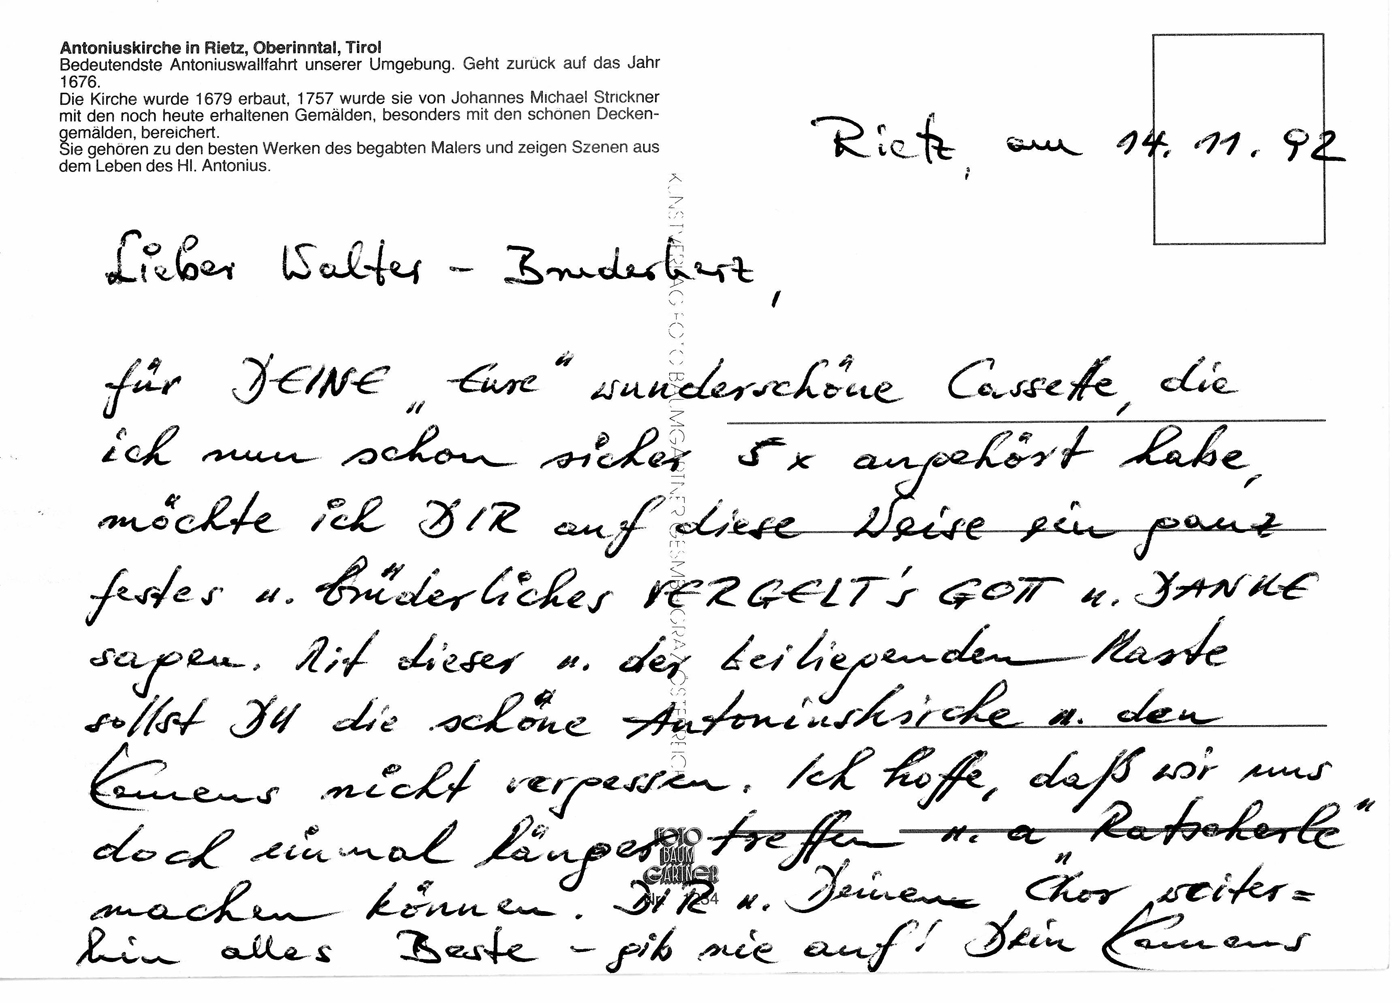 Antoniuskirche in Rietz, Oberinntal, Tirol
Bedeutendste Antoniuswallfahrt unserer Umgebung. Geht zurück auf das Jahr
1676.
Die Kirche wurde 1679 erbaut, 1757 wurde sie von Johannes Michael Strickner
mit den noch heute erhaltenen Gemälden, besonders mit den schönen Decken-
gemälden, bereichert.
Sie gehören zu den besten Werken des begabten Malers und zeigen Szenen aus
dem Leben des Hl. Antonius.
Rietz, am 14. 11. 92
Lieber Walter – Bruderherz,
für DEINE „Eure“ wunderschöne Cassette, die
ich nun schon sicher 5x angehört habe,
möchte ich DIR auf diese Weise ein ganz
festes u. brüderliches VERGELT's GOTT u. DANKE
sagen. Mit dieser u. der beiliegenden Karte
sollst DU die schöne Antoniuskirche u. den
Klemens nicht vergessen. Ich hoffe, daß wir uns
doch einmal länger treffen u. a „Ratscherle“
machen können. DIR u. Deinem Chor weiter=
hin alles Beste – gib nie auf! Dein Klemens
KUNSTVERLAG FOTO BAUMGARTNER GESMBH GRAZ ÖSTERREICH
FOTO
BAUM
GARTNER